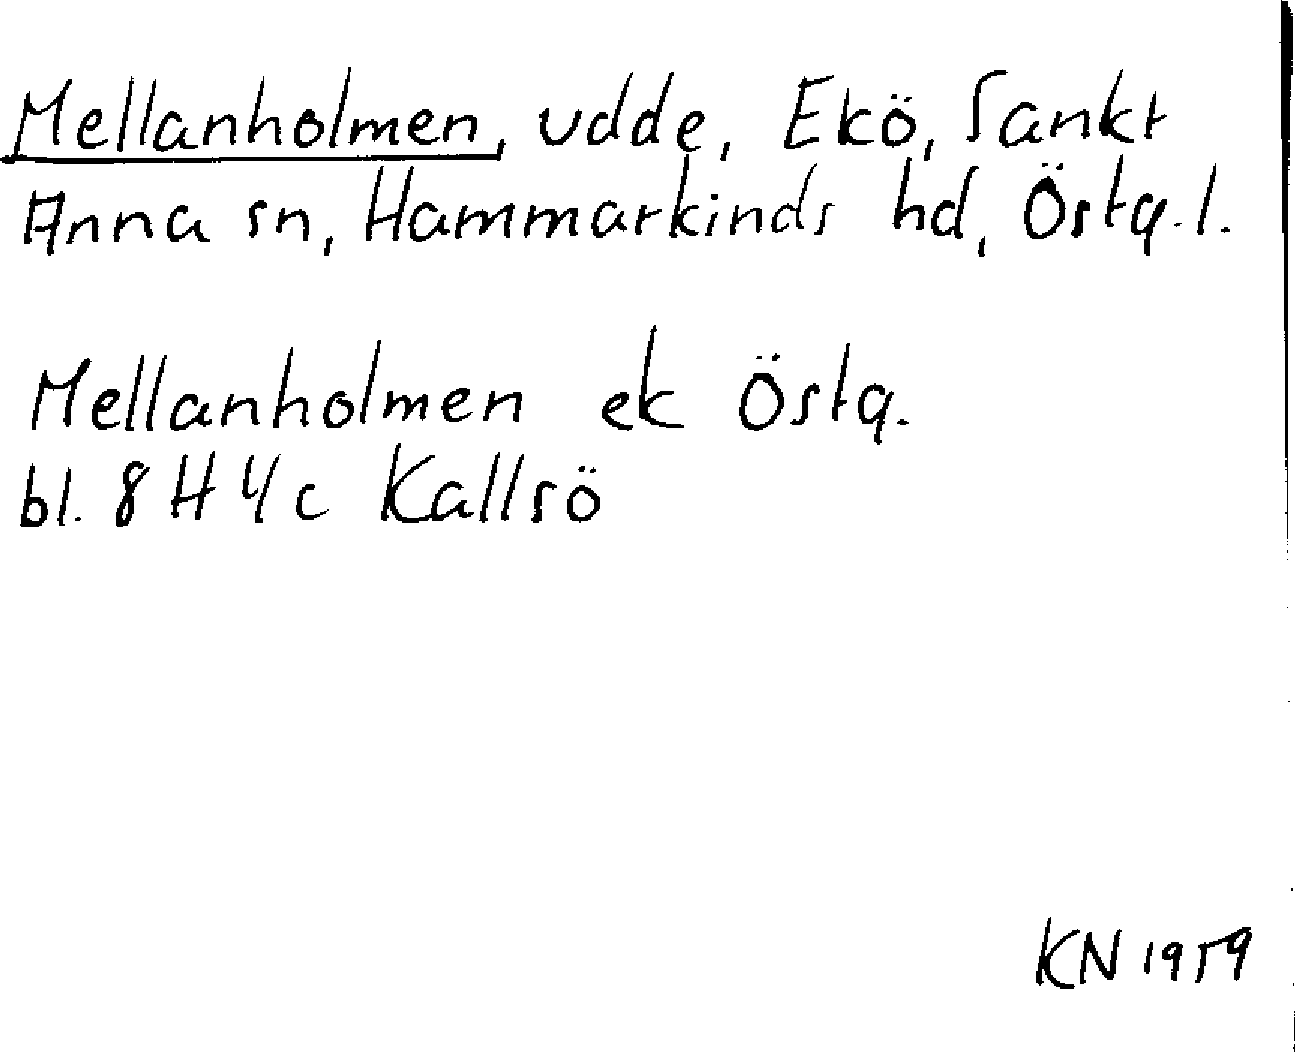 Mellanholmen, udde, Ekö, Sankt
Anna sn, Hammarkinds hd, Östg.l.
Mellanholmen ek Östg.
bl. 8 H 4 c Kallsö
KN 1959